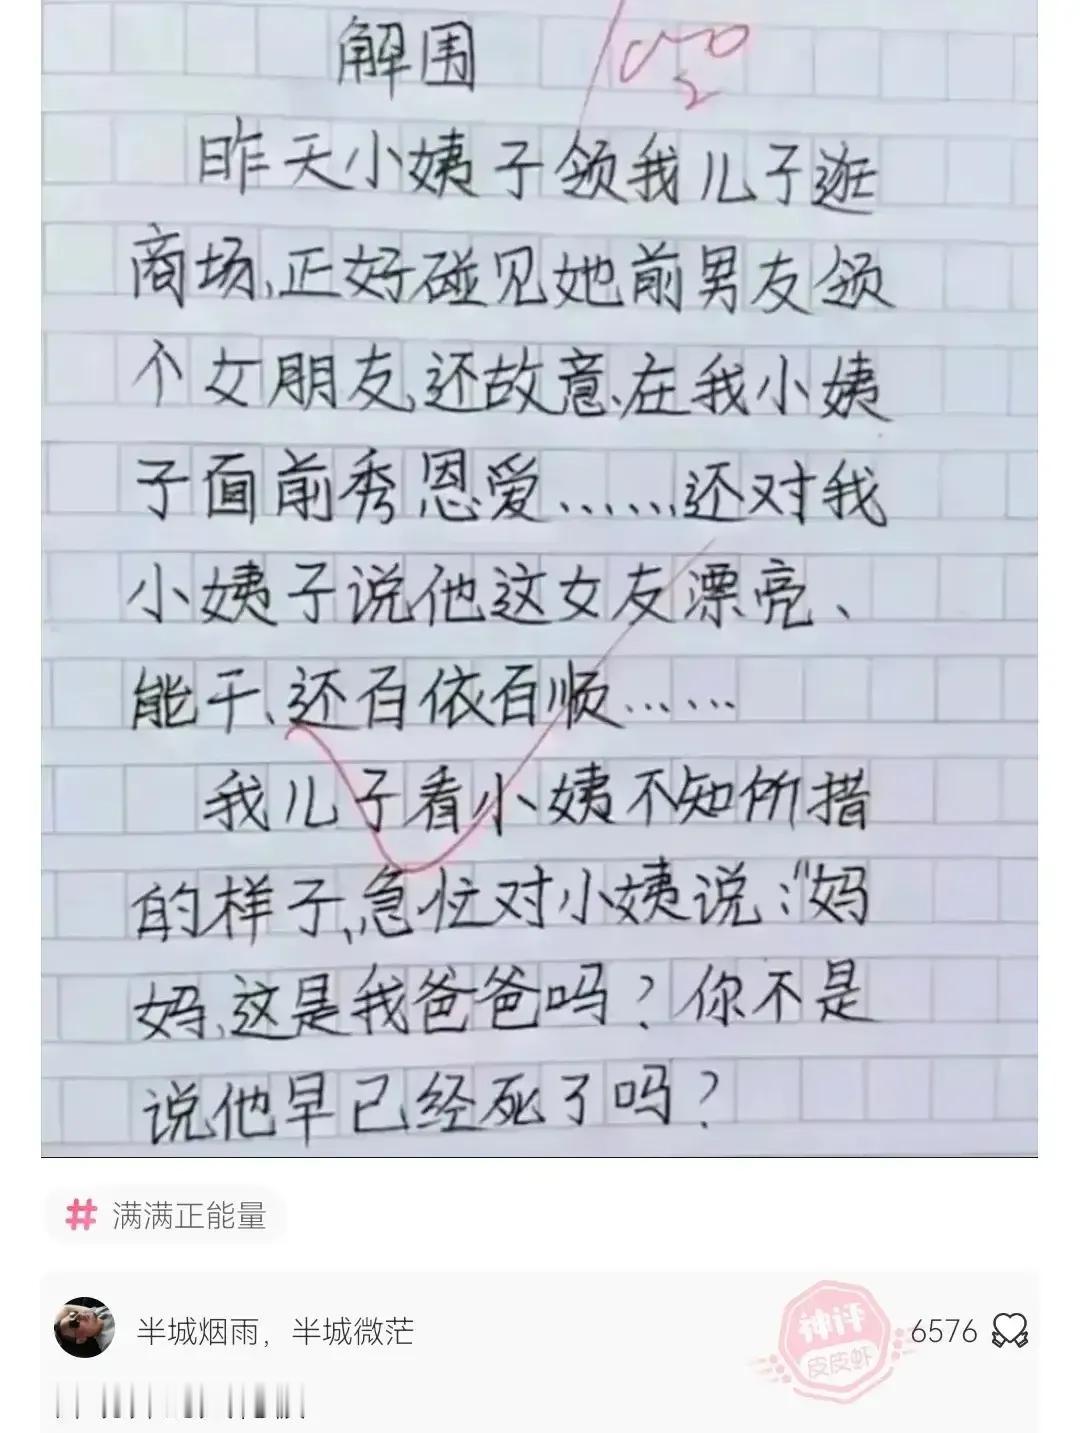 解围
昨天小姨子领我儿子逛
商场,正好碰见她前男友领
个女朋友,还故意、在我小姨
子面前秀恩爱……还对我
小姨子说他这女友漂亮、
能干、还百依百顺……
我儿子看小姨不知所措
的样子,急忙对小姨说:“妈
妈,这是我爸爸吗?你不是
说他早已经死了吗?
# 满满正能量
半城烟雨，半城微茫
神评
皮皮虾
6576